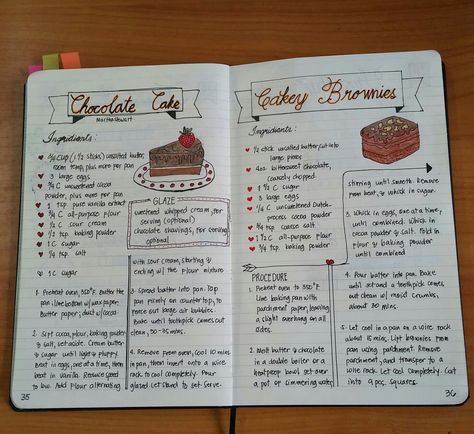 Chocolate Cake
Martha Stewart
Ingredients:
3/4 cup (1 1/2 sticks) unsalted butter,
room temp, plus more for pan
3 large eggs
3/4 C unsweetened cocoa
powder, plus more for pan
1 tsp. pure vanilla extract
3/4 C all-purpose flour
1/2 C sour cream
1/2 tsp baking powder
1 C sugar
1/4 tsp salt
1 C sugar
GLAZE
sweetened whipped cream, for
serving (optional)
chocolate shavings, for serving
(optional)
1. Prevent oven, 350°F. Butter the
pan; line bottom w/ wax paper.
Butter paper; dust w/ cocoa
2. Sift cocoa, flour, baking powder
& salt, set aside. Cream butter
& sugar until light & fluffy.
Beat in eggs, one at a time, then
beat in vanilla. Reduce speed
to low. Add flour alternating
with sour cream, starting &
ending w/ the flour mixture
3. Spread butter into pan. Tap
pan nicely on countertop, to
force out large air bubbles.
Bake until toothpick comes out
clean, 30-35 mins.
4. Remove from oven, cool 10 mins
in pan, then invert onto a wire
rack to cool completely. Pour
glaze. Let stand to set. Serve.
35
Cakey Brownies
Ingredients:
1/2 stick unsalted butter, cut into
large pieces
4 oz bittersweet chocolate,
coarsely chopped
1 1/2 C sugar
3 large eggs
1/4 C unsweetened Dutch-
process cocoa powder
3/4 tsp coarse salt
1 1/2 C all-purpose flour
3/4 tsp. baking powder
PROCEDURE
1. Prevent oven to 350°F.
Line baking pan with
parchment paper, leaving
a slight overhang on all
sides.
2. Melt butter & chocolate
in a double boiler or a
heatproof bowl set over
a pot of simmering water
stirring until smooth. Remove
from heat, & whisk in sugar.
3. Whisk in eggs, one at a time,
until combined. Whisk in
cocoa powder & salt. Fold in
flour & baking powder
until combined
4. Pour batter into pan. Bake
until set and a toothpick comes
out clean w/ moist crumbs,
about 30 mins.
5. Let cool in pan on a wire rack
about 15 mins. Lift brownies from
pan using parchment. Remove
parchment, and transfer to a
wire rack. Let cool completely. Cut
into 9 pcs. squares.
36